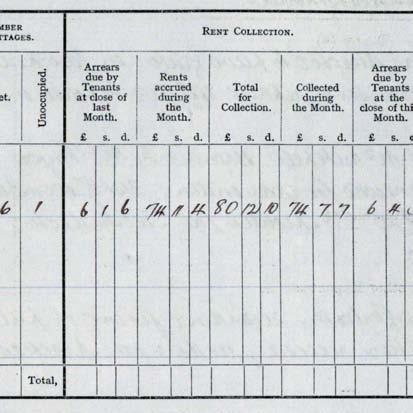 MBER
TTAGES.
RENT COLLECTION.
et.
Unoccupied.
Arrears due by Tenants at close of last Month.
Rents accrued during the Month.
Total for Collection.
Collected during the Month.
Arrears due by Tenants at the close of this Month.
£ s. d. £ s. d. £ s. d. £ s. d. £ s.
6 1 6 1 6 74 11 4 80 12 10 74 7 7 6 4
Total,